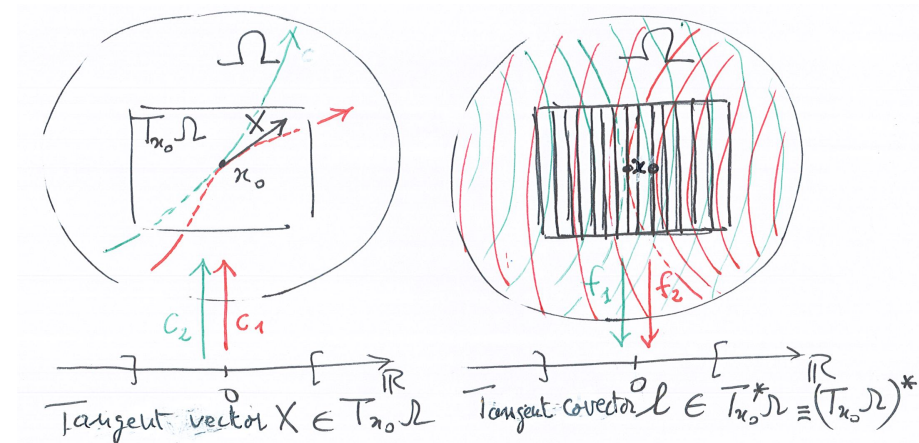 Ω
T_{x₀}Ω
X
x₀
C₂ C₁
0
ℝ
Tangent vector X ∈ T_{x₀}Ω
Ω
x₀
f₁ f₂
0
Tangent covector l ∈ T*_{x₀}Ω ≡ (T_{x₀}Ω)*
ℝ